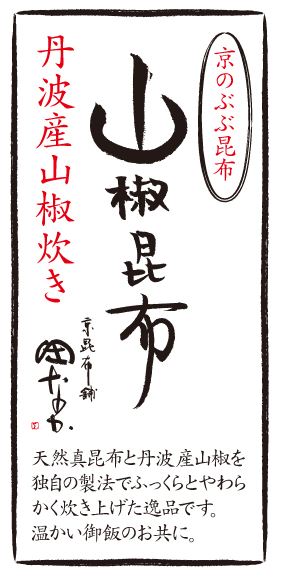 京のぶぶ昆布
山椒昆布
丹波産山椒炊き
京昆布舗
田なか
天然真昆布と丹波産山椒を
独自の製法でふっくらとやわら
かく炊き上げた逸品です。
温かい御飯のお共に。